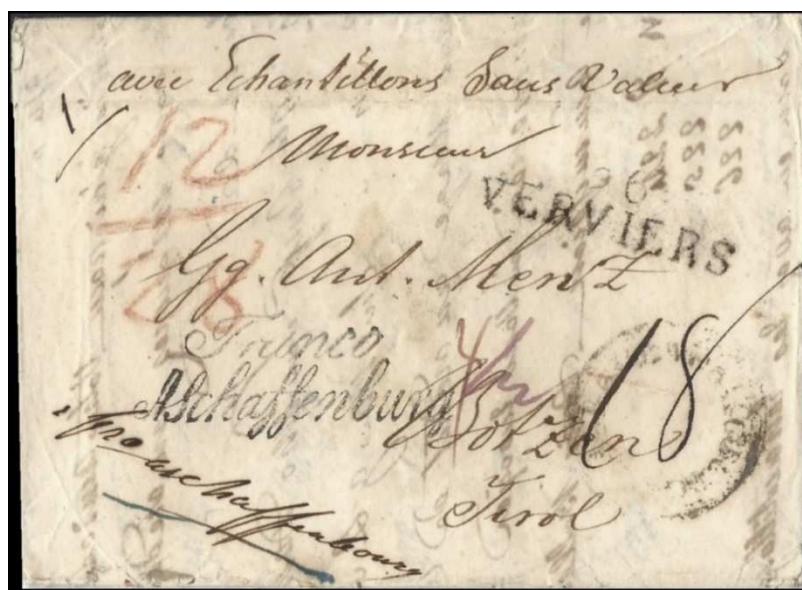 avec Echantillons Sans Valeur
Monsieur
12
96
VERVIERS
Gg. Ant. Menz
28
Franco
Aschaffenburg
18
Botzen
fro aschaffenbourg
Tirol